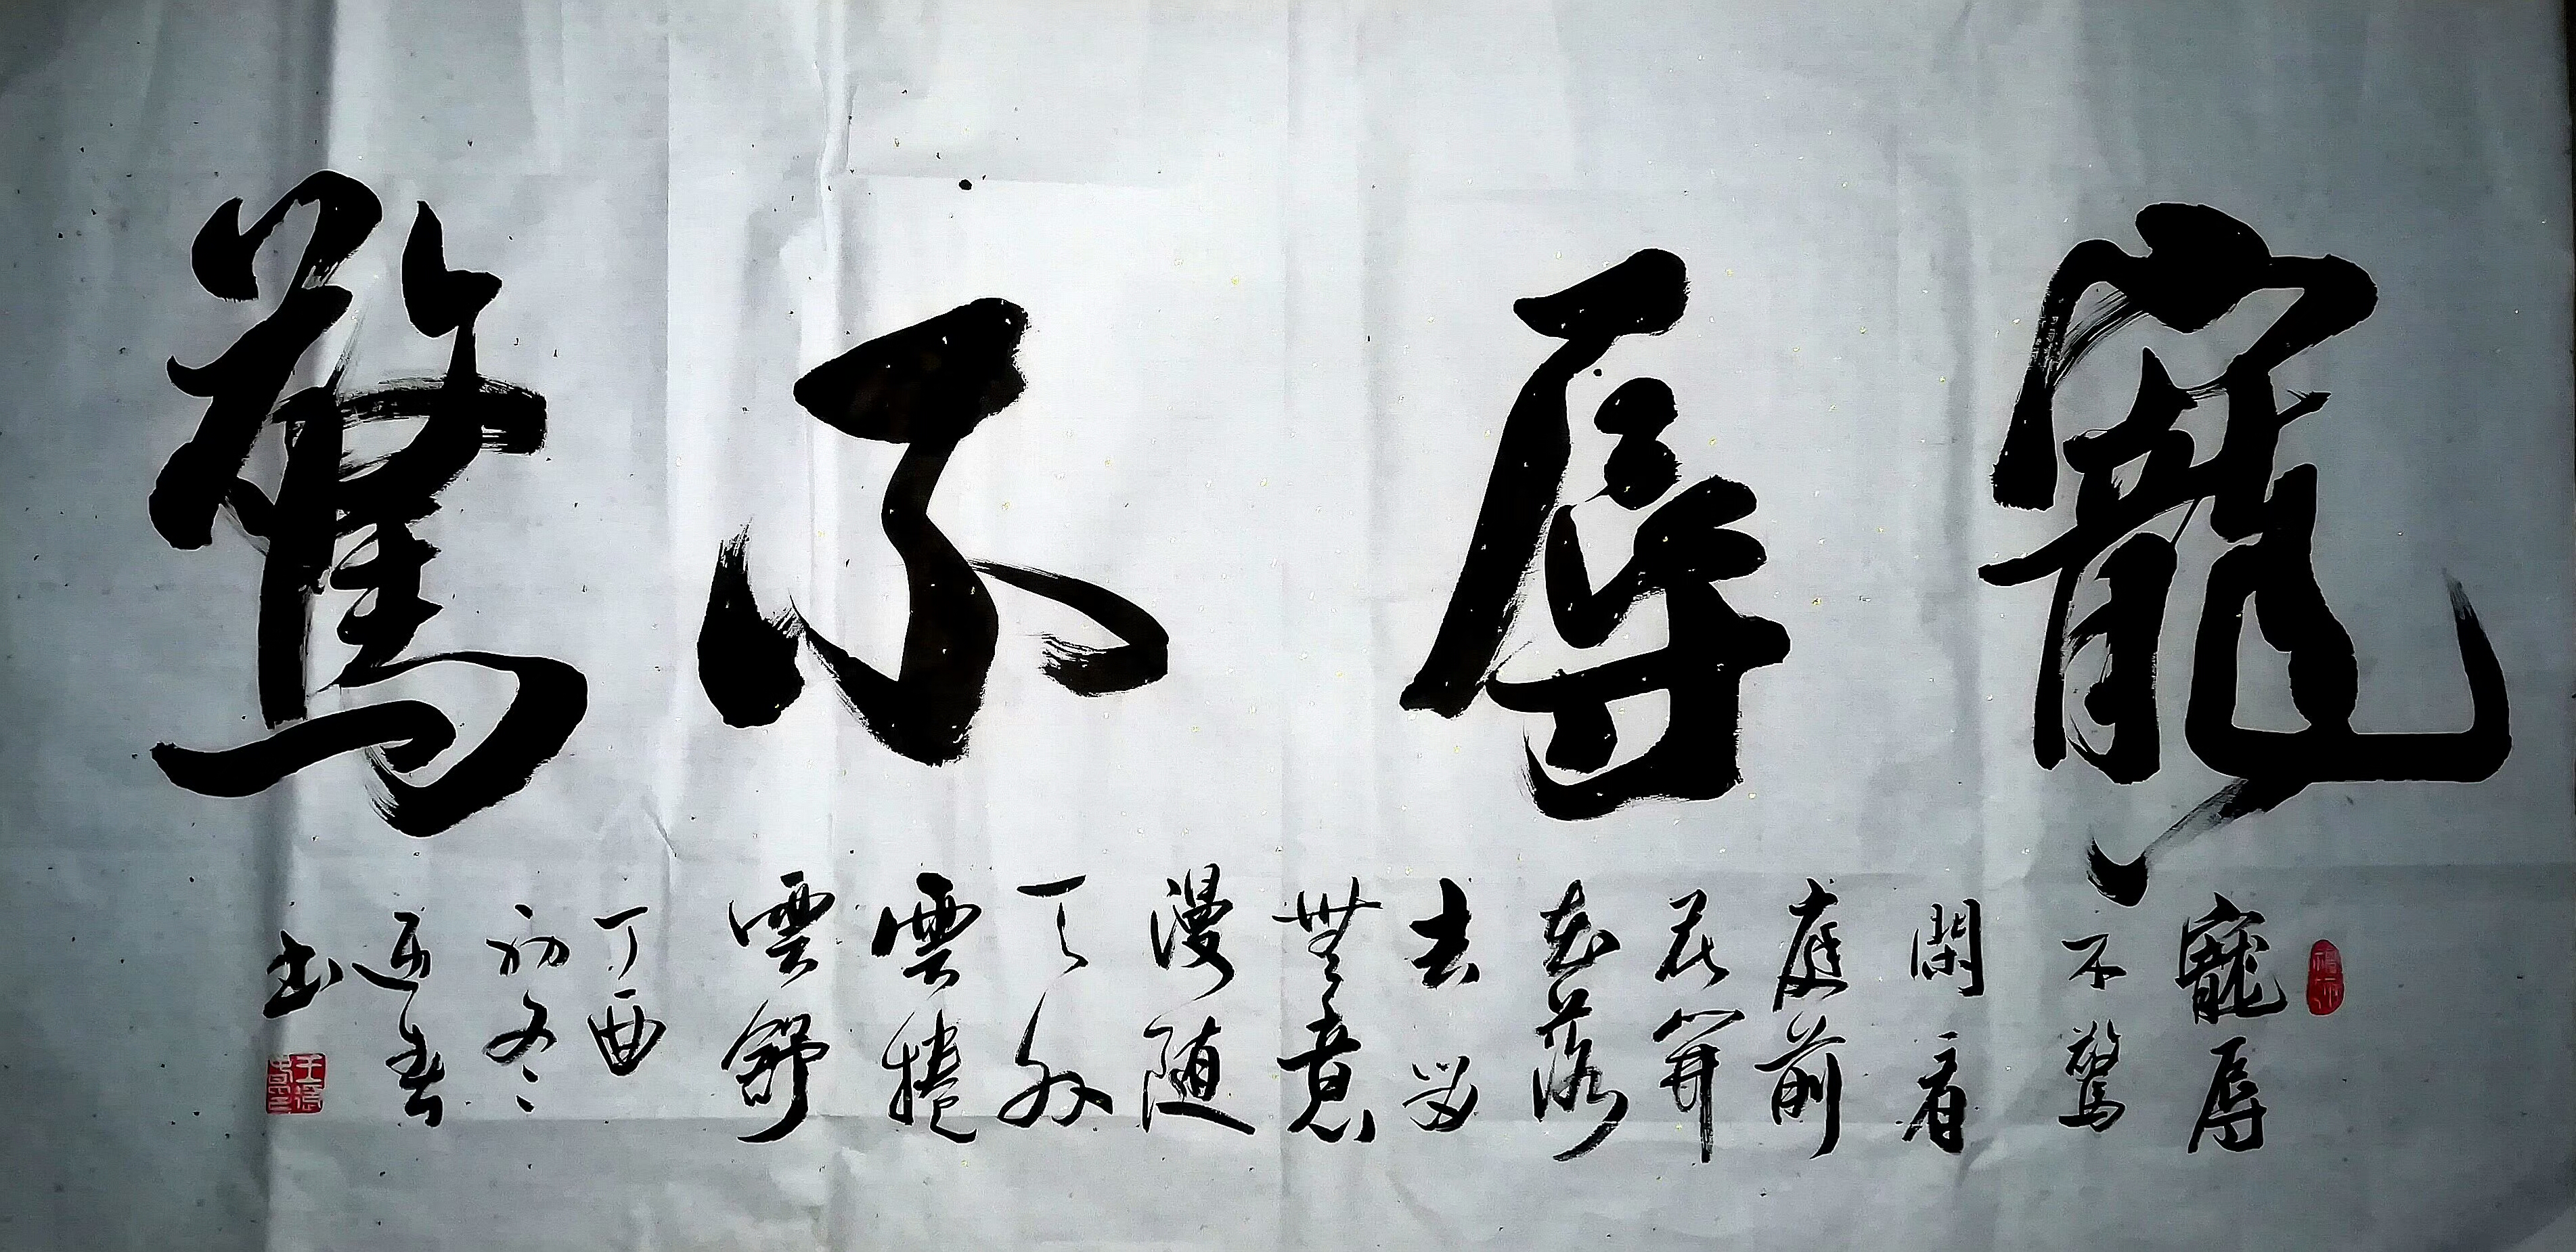 寵辱不驚
寵辱
不驚
閑看
庭前
花開
花落
去留
無意
漫隨
天外
雲捲
雲舒
丁酉
初冬
書